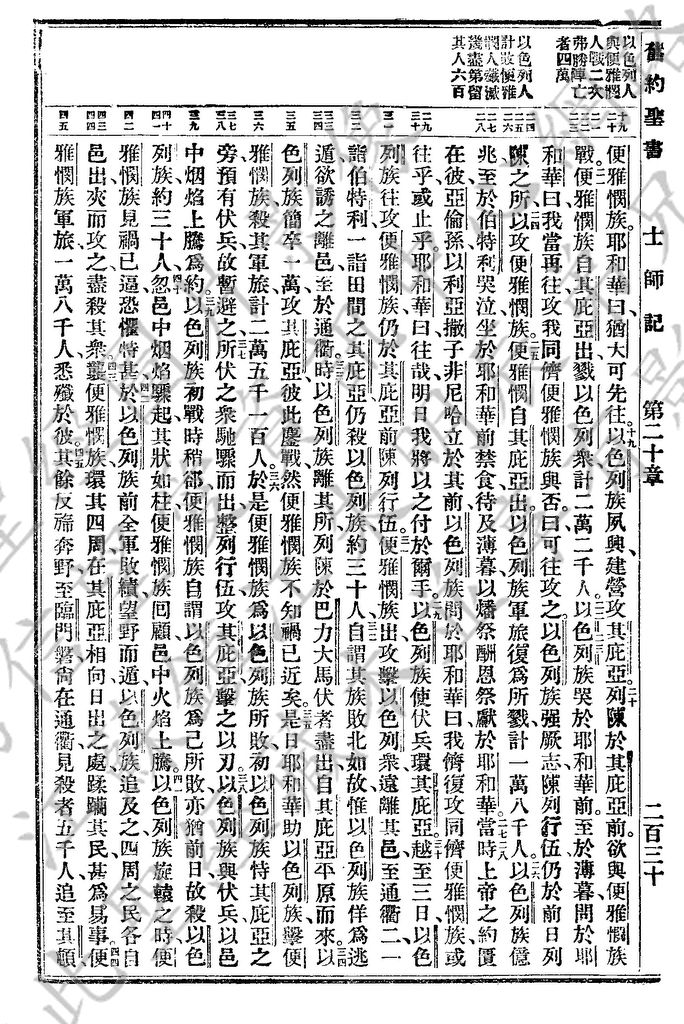 舊約聖書 士師記 第二十章 二百三十
以色列人
與便雅憫
人戰二次
弗勝陣亡
者四萬
以色列人
計敗便雅
憫人殲滅
淺盡第留
其人六百
十九
二十
二一
二二
二三
二四
二五
二六
二七
二八
二九
三十
三一
三二
三三
三四
三五
三六
三七
三八
三九
四十
四一
四二
四三
四四
四五
便雅憫族耶和華曰猶大可先往以色列族夙興建營攻其庇亞列陳於其庇亞前欲與便雅憫族
戰便雅憫族自其庇亞出戮以色列衆計二萬二千人以色列族哭於耶和華前至於薄暮問於耶
和華曰我當再往攻我同儕便雅憫族與否曰可往攻之以色列族强厥志陳列行伍仍於前日列
陳之所以攻便雅憫族便雅憫自其庇亞出以色列族軍旅復爲所戮計一萬八千人以色列族億
兆至於伯特利哭泣坐於耶和華前禁食待及薄暮以燔祭酬恩祭獻於耶和華當時上帝之約匱
在彼亞倫孫以利亞撒子非尼哈立於其前以色列族問於耶和華曰我儕復攻同儕便雅憫族或
往乎或止乎耶和華曰往哉明日我將以之付於爾手以色列族使伏兵環其庇亞越至三日以色
列族往攻便雅憫族仍於其庇亞前陳列行伍便雅憫族出攻擊以色列衆遠離其邑至通衢二一
詣伯特利一詣田間之其庇亞仍殺以色列族約三十人自謂其族敗北如故惟以色列族佯爲逃
遁欲誘之離邑至於通衢時以色列族離其所列陳於巴力大馬伏者盡出自其庇亞平原而來以
色列族簡卒一萬攻其庇亞彼此鏖戰然便雅憫族不知禍已近矣是日耶和華助以色列族擊便
雅憫族殺其軍旅計二萬五千一百人於是便雅憫族爲以色列族所敗初以色列族恃其庇亞之
旁預有伏兵故暫避之所伏之衆馳驟而出整列行伍攻其庇亞擊之以刃以色列族與伏兵以邑
中烟焰上騰爲約以色列族初戰時稍郤便雅憫族自謂以色列族爲己所敗亦猶前日故殺以色
列族約三十人忽邑中烟焰驟起其狀如柱便雅憫族回顧邑中火焰上騰以色列族旋轅之時便
雅憫族見禍已逼恐懼特甚於以色列族前全軍敗績望野而遁以色列族追及之四周之民各自
邑出夾而攻之盡殺其衆襲便雅憫族環其四周在其庇亞相向日出之處蹂躪其民甚爲易事便
雅憫族軍旅一萬八千人悉殲於彼其餘反旆奔野至臨門磐尙在通衢見殺者五千人追至其頓